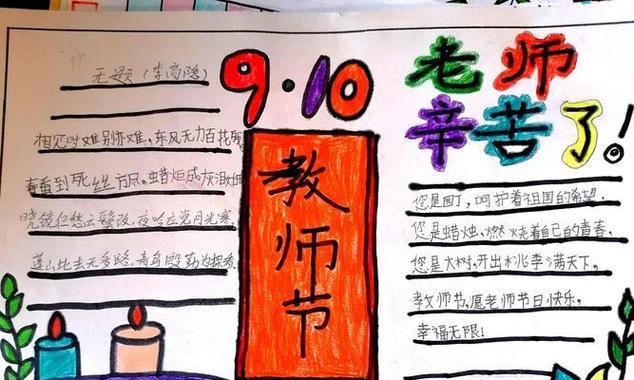 无题(李商隐)
相见时难别亦难,东风无力百花残
春蚕到死丝方尽,蜡炬成灰泪
晓镜但愁云鬓改,夜吟应觉月光寒
蓬山此去无多路,青鸟殷勤为探看
9·10
教师节
老师
辛苦了!
您是园丁,呵护着祖国的希望.
您是蜡烛,燃烧着自己的青春,
您是大树,开出桃李满天下。
教师节,愿老师节日快乐,
幸福无限!